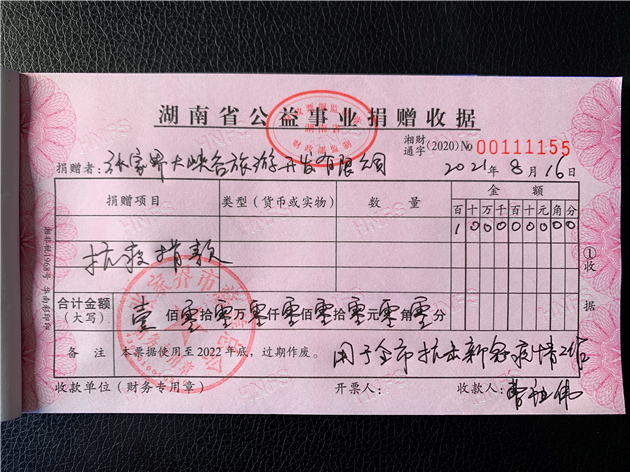 湖南省公益事业捐赠收据
湘财通字(2020)No 00111155
捐赠者：张家界大峡谷旅游开发有限公司 2021年8月16日
捐赠项目 类型（货币或实物） 数 量 金 额
百十万千百十元角分
100000000
抗疫捐款
合计金额（大写） 壹佰零拾零万零仟零佰零拾零元零角零分
备 注 本票据使用至2022年底，过期作废。 用于全市抗击新冠疫情工作
收款单位（财务专用章） 开票人： 收款人：
①收据
湘非税1968号